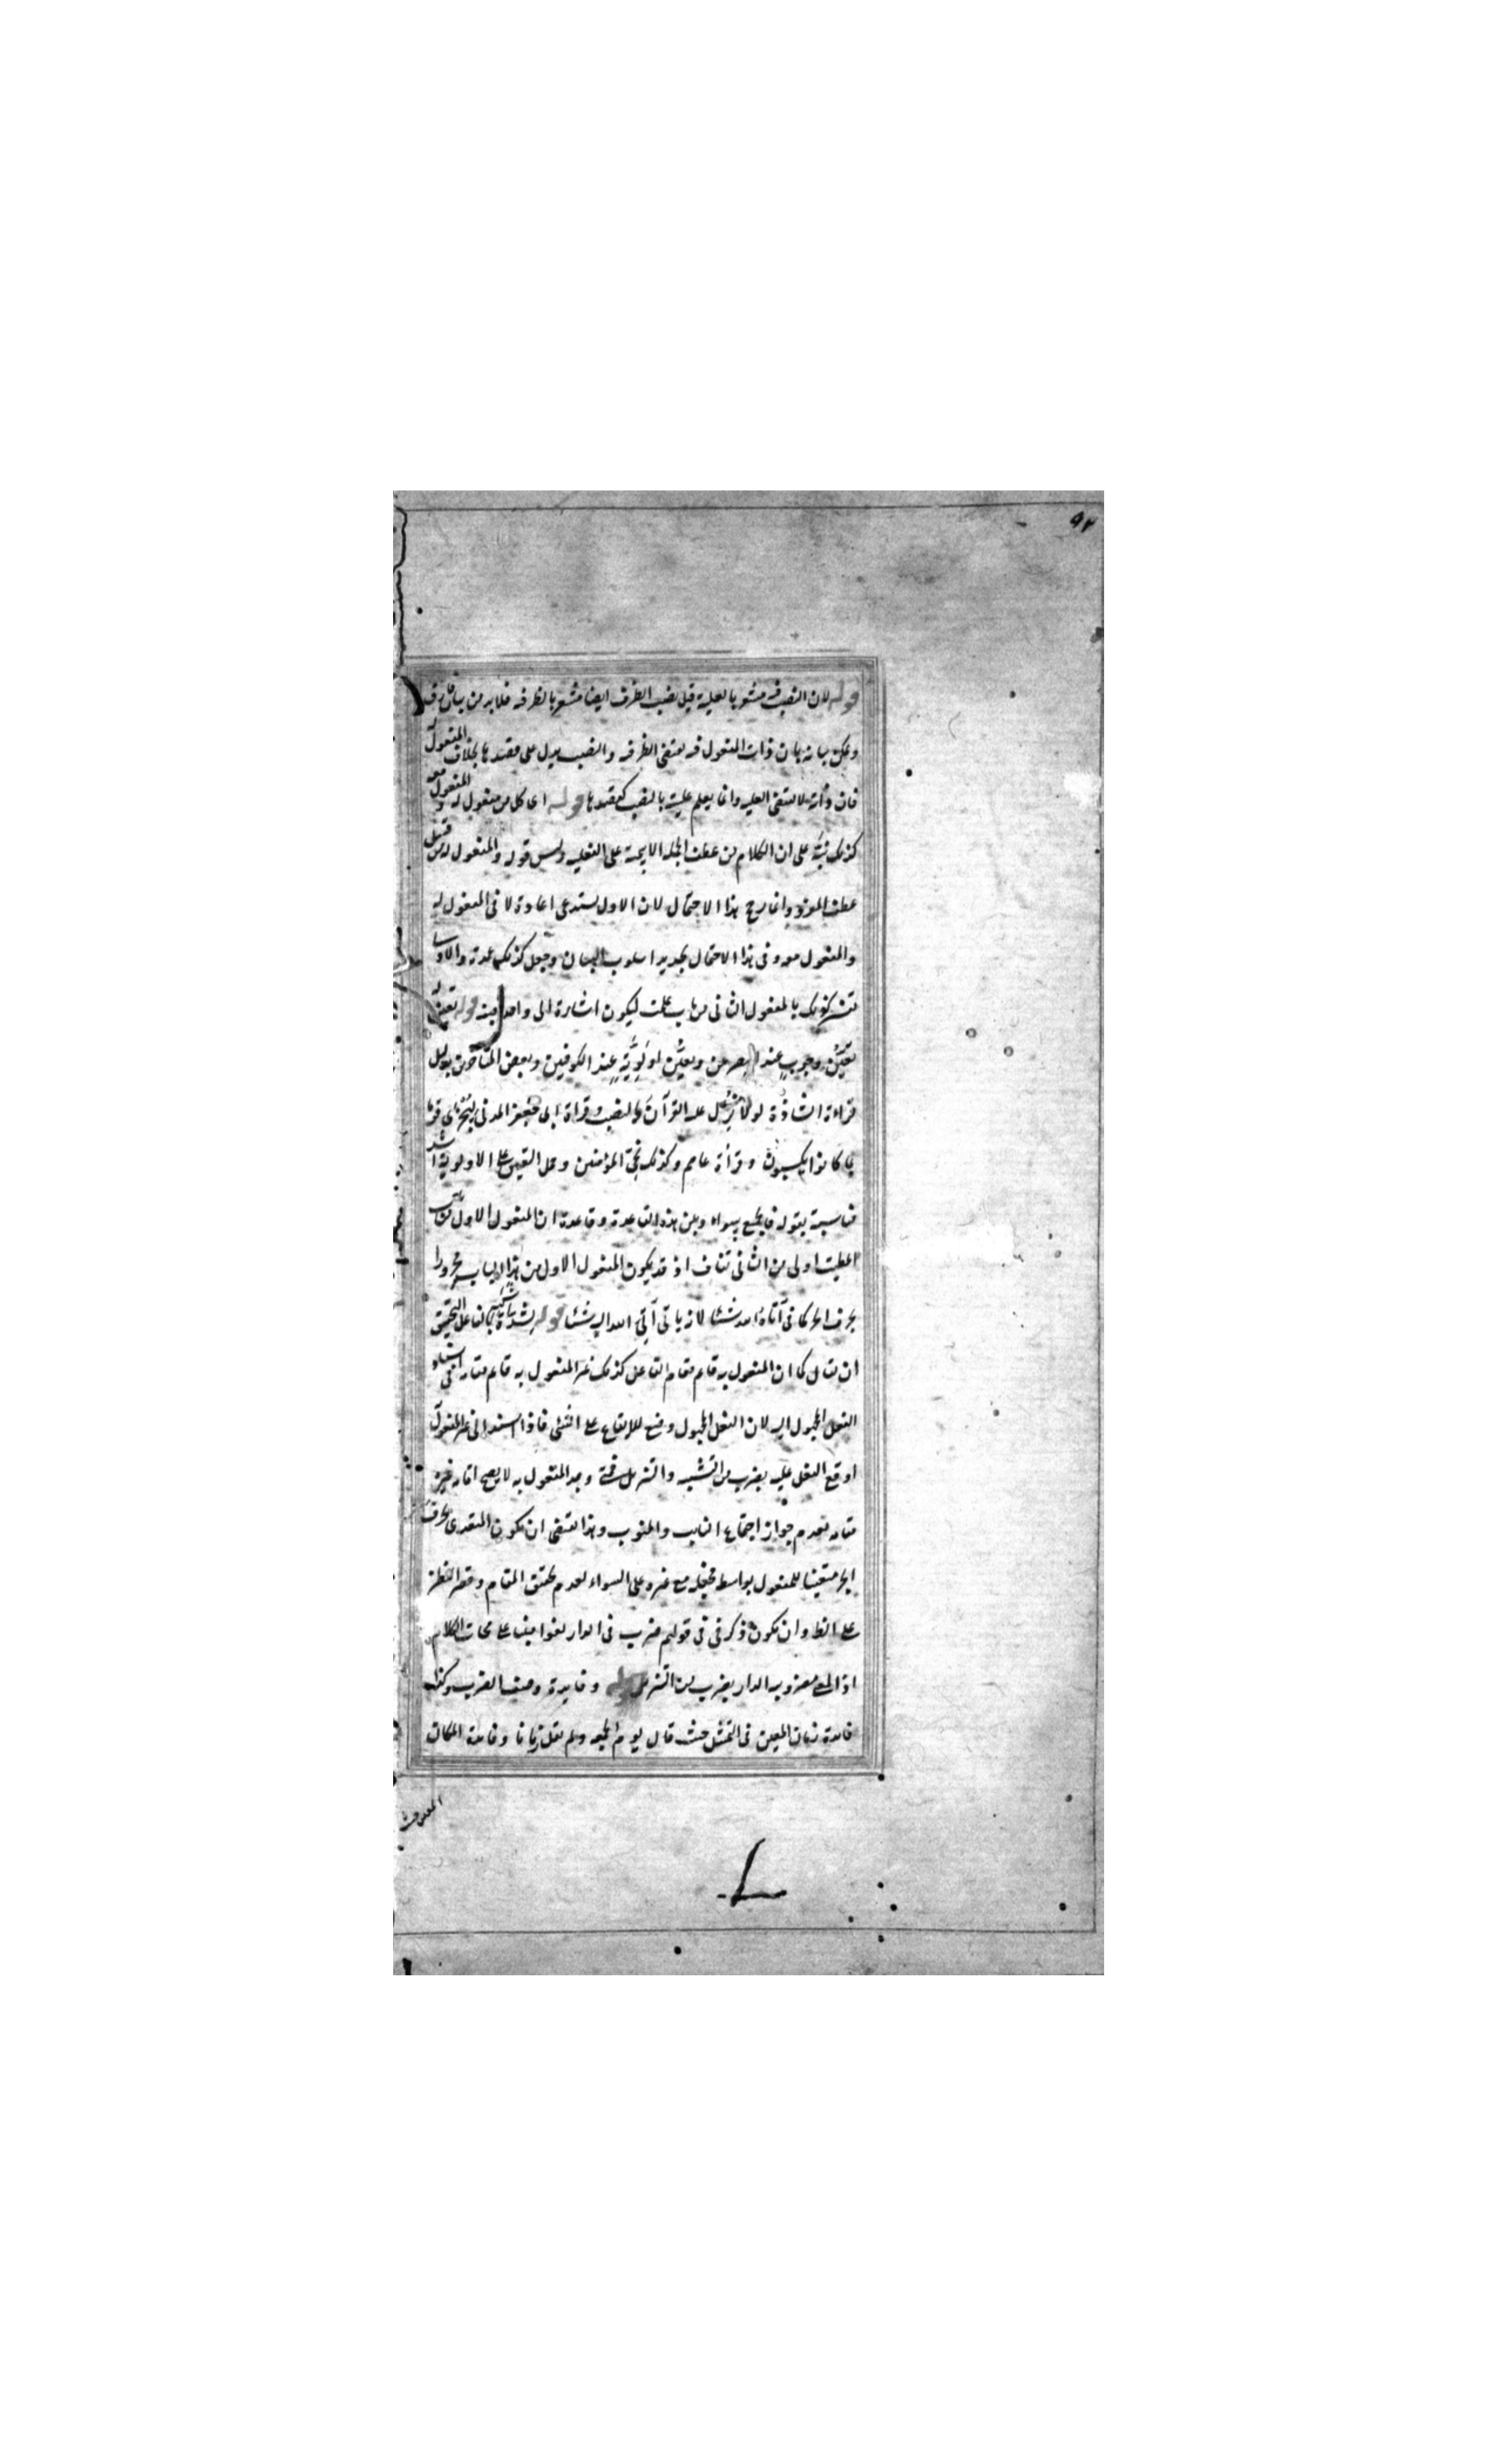 ٩٢
قوله لان النصب فيه مشعر بالعلية قيل نصب الظرف ايضا مشعر بالظرفية فلابد من بيان فارق
ويمكن بيانه بان ذات المفعول فيه يقتضى الظرفية والنصب يدل على قصدها بخلاف المفعول له
فان ذاته لا تقتضى العلية وانما يعلم عليته بالنصب كقصدها قوله اى كل من مفعول له والمفعول معه
كذلك نبه على ان الكلام من عطف الجملة الاسمية على الفعلية وليس قوله والمفعول له من قبيل
عطف المفرد وانما رجح هذا الاحتمال لان الاول يستدعى اعادة لا فى المفعول له
والمفعول معه وفى هذا الاحتمال تجديد اسلوب البيان وجعل كذلك عمدة والاول
كذلك بالمفعول الثانى من باب علمت ليكون اشارة الى واحد منه قوله تعين له
تعين وجوب عند البصريين وتعين اولوية عند الكوفيين وبعض المتأخرين بدليل
قراءة الشاذة لولا نزل عليه القرآن بالنصب وقراءة ابى جعفر المدنى ليجزى قوما
بما كانوا يكسبون وقرأة عاصم وكذلك نجى المؤمنين وحمل التعين على الاولوية اشد
مناسبة بقوله فالجميع سواء وبين هذه القاعدة وقاعدة ان المفعول الاول من باب
اعطيت اولى من الثانى تناف اذ قد يكون المفعول الاول من هذا الباب مجرورا
بحرف الجر كما فى آتاه الله شيئا لانه ياتى آتى الله اليه شيئا قوله لشدة شبهه بالفاعل التحقيق
ان يقال كما ان المفعول به قام مقام الفاعل كذلك غير المفعول به قام مقامه فى اسناد
الفعل المجهول اليه لان الفعل المجهول وضع للايقاع على الشئ فاذا اسند الى غير المفعول
اوقع الفعل عليه بضرب من التشبيه والتنزيل ومع المفعول به لا يصح اقامة غيره
مقامه لعدم جواز اجتماع النايب والمنوب وهذا يقتضى ان يكون المتعدى بحرف
الجر متعينا للمفعول بواسطة فجعله مع غيره على السواء لعدم تحقق المقام وقصر النظر
على الظاهر وان يكون ذكر فى فى قولهم ضرب فى الدار لغوا مبنيا على الكلام
اذ المعنى مضروبية الدار بضرب من التنزيل قوله وفايدة وصف الضرب وكذا
فايدة زمان المعين فى التمثيل حيث قال يوم الجمعة ولم يقل زمانا وفايدة المكان
المعين حيث